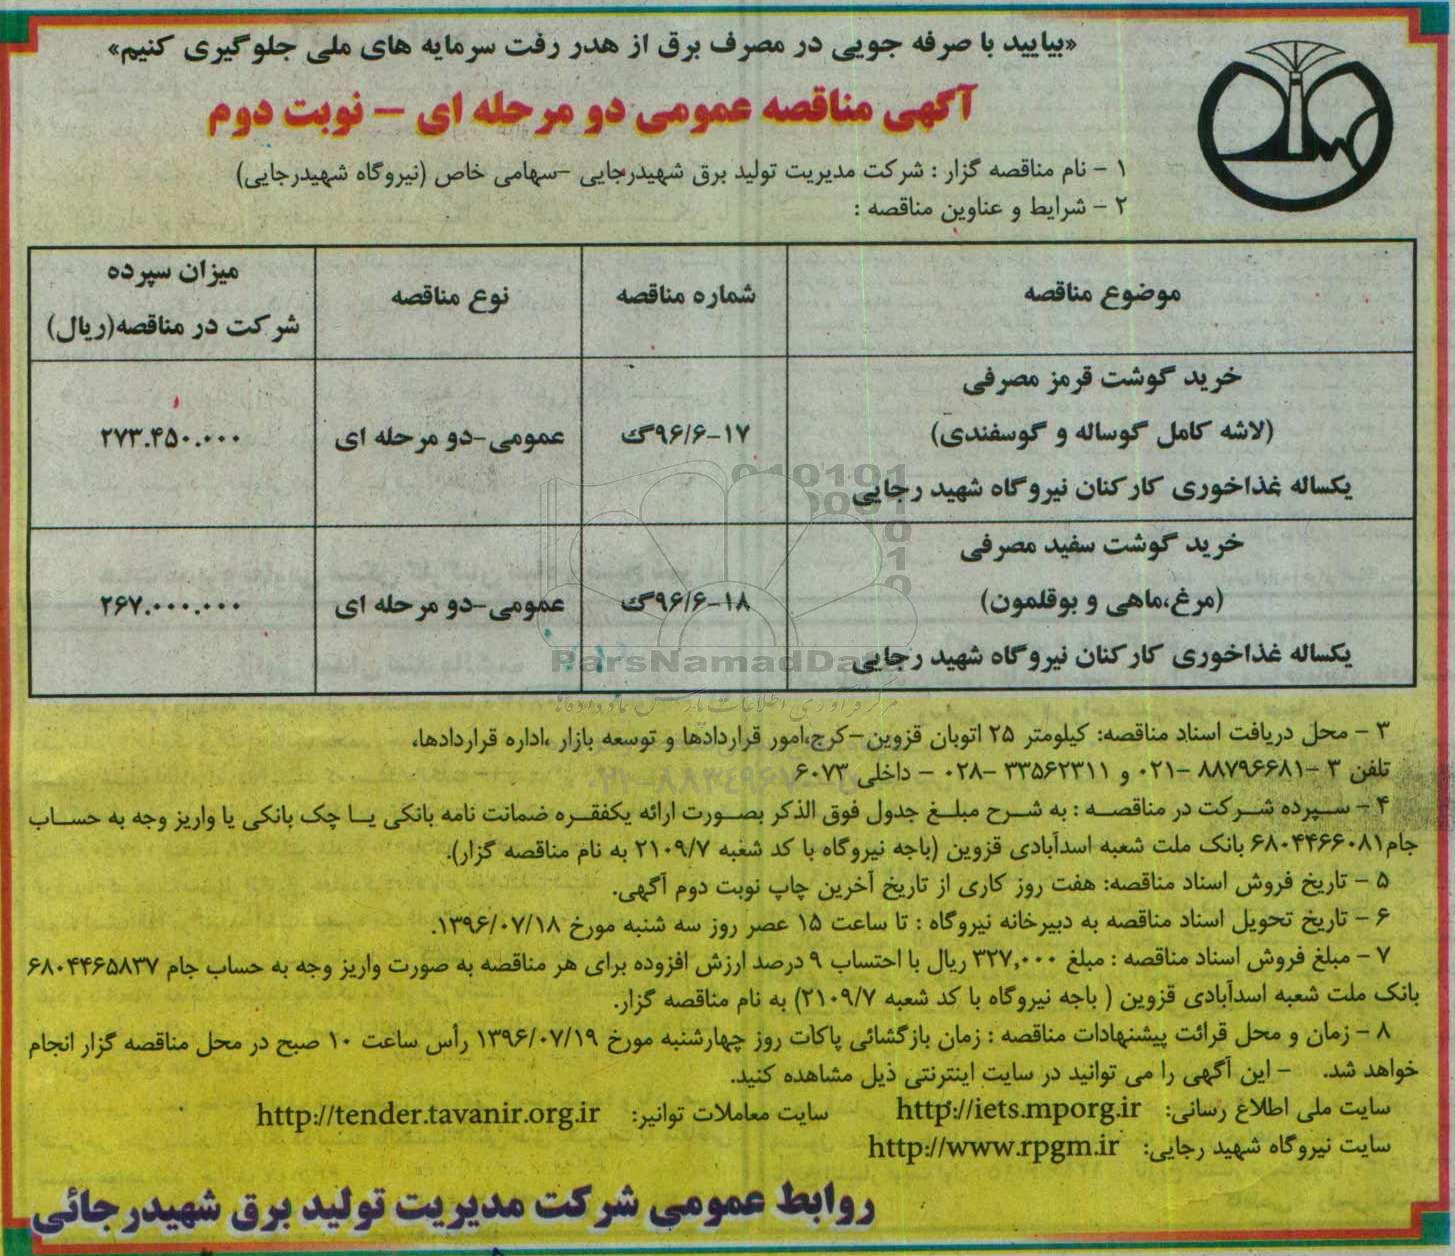 «بیایید با صرفه جویی در مصرف برق از هدر رفت سرمایه های ملی جلوگیری کنیم»
آگهی مناقصه عمومی دو مرحله ای – نوبت دوم
۱ – نام مناقصه گزار : شرکت مدیریت تولید برق شهیدرجایی –سهامی خاص (نیروگاه شهیدرجایی)
۲ – شرایط و عناوین مناقصه :
موضوع مناقصه
شماره مناقصه
نوع مناقصه
میزان سپرده
شرکت در مناقصه(ریال)
خرید گوشت قرمز مصرفی
(لاشه کامل گوساله و گوسفندی)
یکساله غذاخوری کارکنان نیروگاه شهید رجایی
۱۷-۹۶/۶گ
عمومی-دو مرحله ای
۲۷۳.۴۵۰.۰۰۰
خرید گوشت سفید مصرفی
(مرغ،ماهی و بوقلمون)
یکساله غذاخوری کارکنان نیروگاه شهید رجایی
۱۸-۹۶/۶گ
عمومی-دو مرحله ای
۲۶۷.۰۰۰.۰۰۰
ParsNamadData
۳ – محل دریافت اسناد مناقصه: کیلومتر ۲۵ اتوبان قزوین–کرج،امور قراردادها و توسعه بازار ،اداره قراردادها،
تلفن ۳ –۸۸۷۹۶۶۸۱ –۰۲۱ و ۳۳۵۶۲۳۱۱ –۰۲۸ – داخلی ۶۰۷۳
۴ – سپرده شرکت در مناقصه : به شرح مبلغ جدول فوق الذکر بصورت ارائه یکفقره ضمانت نامه بانکی یا چک بانکی یا واریز وجه به حساب
جام۶۸۰۴۴۶۶۰۸۱ بانک ملت شعبه اسدآبادی قزوین (باجه نیروگاه با کد شعبه ۲۱۰۹/۷ به نام مناقصه گزار).
۵ – تاریخ فروش اسناد مناقصه: هفت روز کاری از تاریخ آخرین چاپ نوبت دوم آگهی.
۶ – تاریخ تحویل اسناد مناقصه به دبیرخانه نیروگاه : تا ساعت ۱۵ عصر روز سه شنبه مورخ ۱۳۹۶/۰۷/۱۸.
۷ – مبلغ فروش اسناد مناقصه : مبلغ ۳۲۷,۰۰۰ ریال با احتساب ۹ درصد ارزش افزوده برای هر مناقصه به صورت واریز وجه به حساب جام ۶۸۰۴۴۶۵۸۳۷
بانک ملت شعبه اسدآبادی قزوین ( باجه نیروگاه با کد شعبه ۲۱۰۹/۷) به نام مناقصه گزار.
۸ – زمان و محل قرائت پیشنهادات مناقصه : زمان بازگشائی پاکات روز چهارشنبه مورخ ۱۳۹۶/۰۷/۱۹ رأس ساعت ۱۰ صبح در محل مناقصه گزار انجام
خواهد شد. – این آگهی را می توانید در سایت اینترنتی ذیل مشاهده کنید.
سایت ملی اطلاع رسانی: http://iets.mporg.ir سایت معاملات توانیر: http://tender.tavanir.org.ir
سایت نیروگاه شهید رجایی: http://www.rpgm.ir
روابط عمومی شرکت مدیریت تولید برق شهیدرجائی